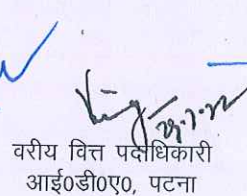 29.7.22
वरीय वित्त पदाधिकारी
आई0डी0ए0, पटना